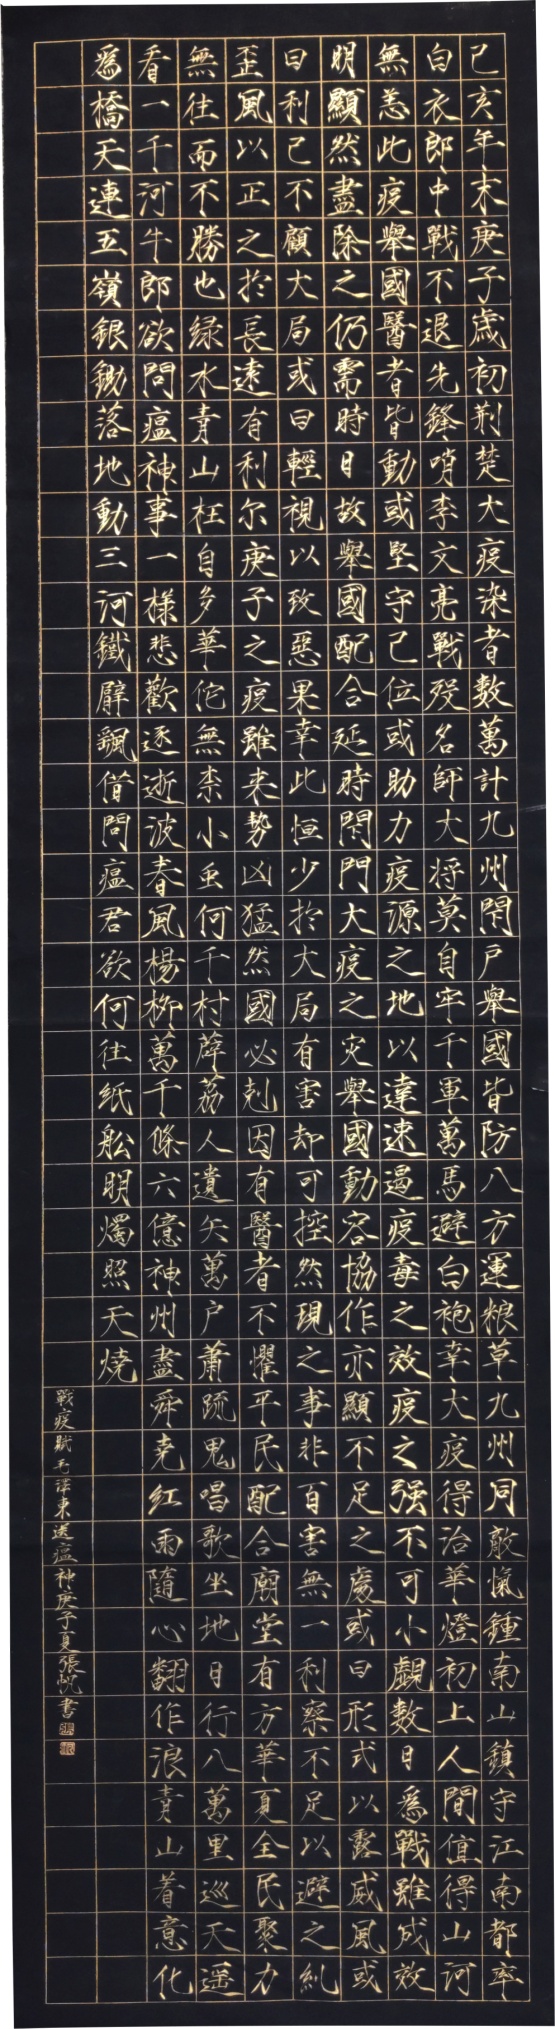 己亥年末庚子歲初荆楚大疫染者數萬計九州閉戶舉國皆防八方運粮草九州同敵愾鍾南山鎮守江南都率
白衣郎中戰不退先鋒哨李文亮戰殁名師大将莫自牢千軍萬馬避白袍幸大疫得治華燈初上人間值得山河
無恙此疫舉國醫者皆動或堅守己位或助力疫源之地以達速遏疫毒之效疫之强不可小覷數日爲戰雖成效
明顯然盡除之仍需時日故舉國配合延時閉門大疫之灾舉國動容協作亦顯不足之處或曰形式以露威風或
曰利己不顧大局或曰輕視以致惡果幸此恒少於大局有害却可控然現之事非百害無一利察不足以避之糾
歪風以正之於長遠有利尔庚子之疫雖来勢凶猛然國必剋因有醫者不懼平民配合廟堂有方華夏全民聚力
無往而不勝也绿水青山枉自多華佗無柰小虫何千村薜荔人遺矢萬戶蕭疏鬼唱歌坐地日行八萬里巡天遥
看一千河牛郎欲問瘟神事一樣悲歡逐逝波春風楊柳萬千條六億神州盡舜尧紅雨隨心翻作浪青山着意化
爲橋天連五嶺銀鋤落地動三河鐵臂飄借問瘟君欲何往紙船明燭照天燒
戰疫賦毛澤東送瘟神庚子夏張帆書